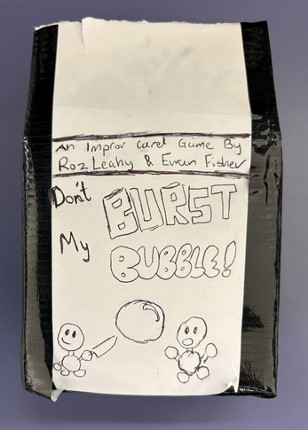 An Improv Card Game By
Roz Leahy & Ewan Fisher
Don't
BURST
My
BUBBLE!